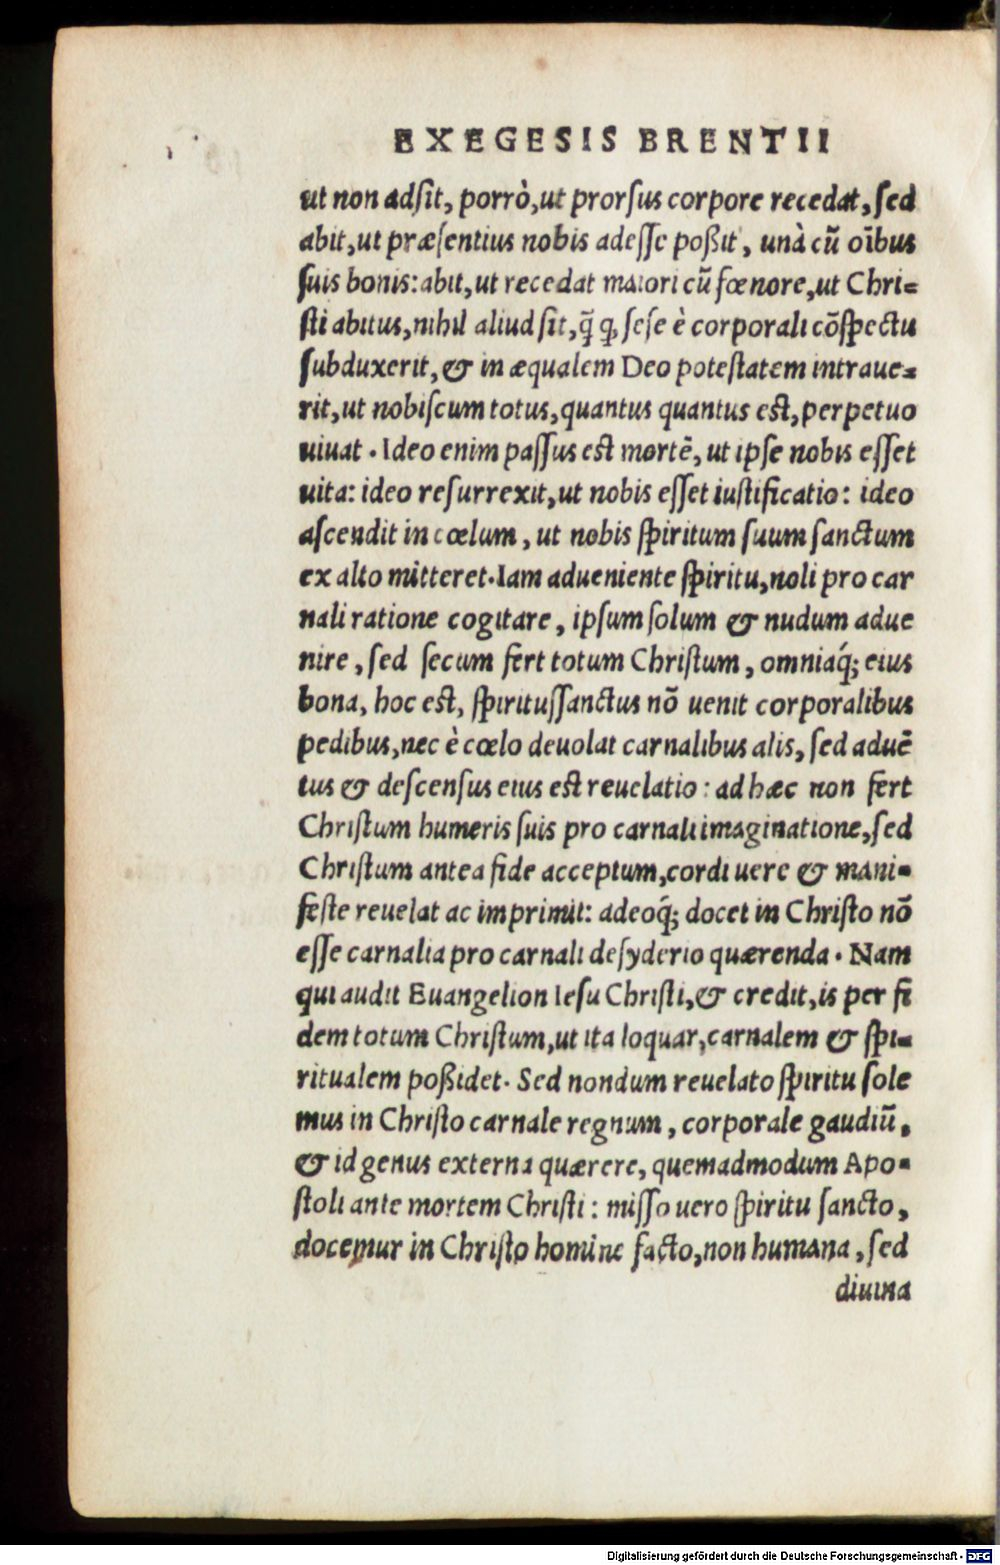 EXEGESIS BRENTII
ut non adſit, porrò, ut prorſus corpore recedat, ſed
abit, ut præſentius nobis adeſſe poßit, unà cũ oĩbus
ſuis bonis: abit, ut recedat maiori cũ fœnore, ut Chri=
ſti abitus, nihil aliud ſit, q̃ꝙ ſeſe è corporali cõſpectu
ſubduxerit, & in æqualem Deo poteſtatem intraue=
rit, ut nobiſcum totus, quantus quantus eſt, perpetuo
uiuat. Ideo enim paſſus eſt mortẽ, ut ipſe nobis eſſet
uita: ideo reſurrexit, ut nobis eſſet iuſtificatio: ideo
aſcendit in cœlum, ut nobis ſpiritum ſuum ſanctum
ex alto mitteret. Iam adueniente ſpiritu, noli pro car
nali ratione cogitare, ipſum ſolum & nudum adue
nire, ſed ſecum fert totum Chriſtum, omniaq́; eius
bona, hoc eſt, ſpirituſſanctus nõ uenit corporalibus
pedibus, nec è cœlo deuolat carnalibus alis, ſed aduẽ
tus & deſcenſus eius eſt reuelatio: ad hæc non fert
Chriſtum humeris ſuis pro carnali imaginatione, ſed
Chriſtum antea fide acceptum, cordi uere & mani=
feſte reuelat ac imprimit: adeoq́; docet in Chriſto nõ
eſſe carnalia pro carnali deſyderio quærenda. Nam
qui audit Euangelion Ieſu Chriſti, & credit, is per fi
dem totum Chriſtum, ut ita loquar, carnalem & ſpi=
ritualem poßidet. Sed nondum reuelato ſpiritu ſole
mus in Chriſto carnale regnum, corporale gaudiũ,
& id genus externa quærere, quemadmodum Apo=
ſtoli ante mortem Chriſti: miſſo uero ſpiritu ſancto,
docemur in Chriſto homine facto, non humana, ſed
diuina
Digitalisierung gefördert durch die Deutsche Forschungsgemeinschaft - DFG